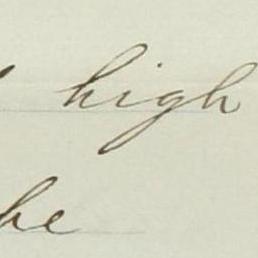 high
be